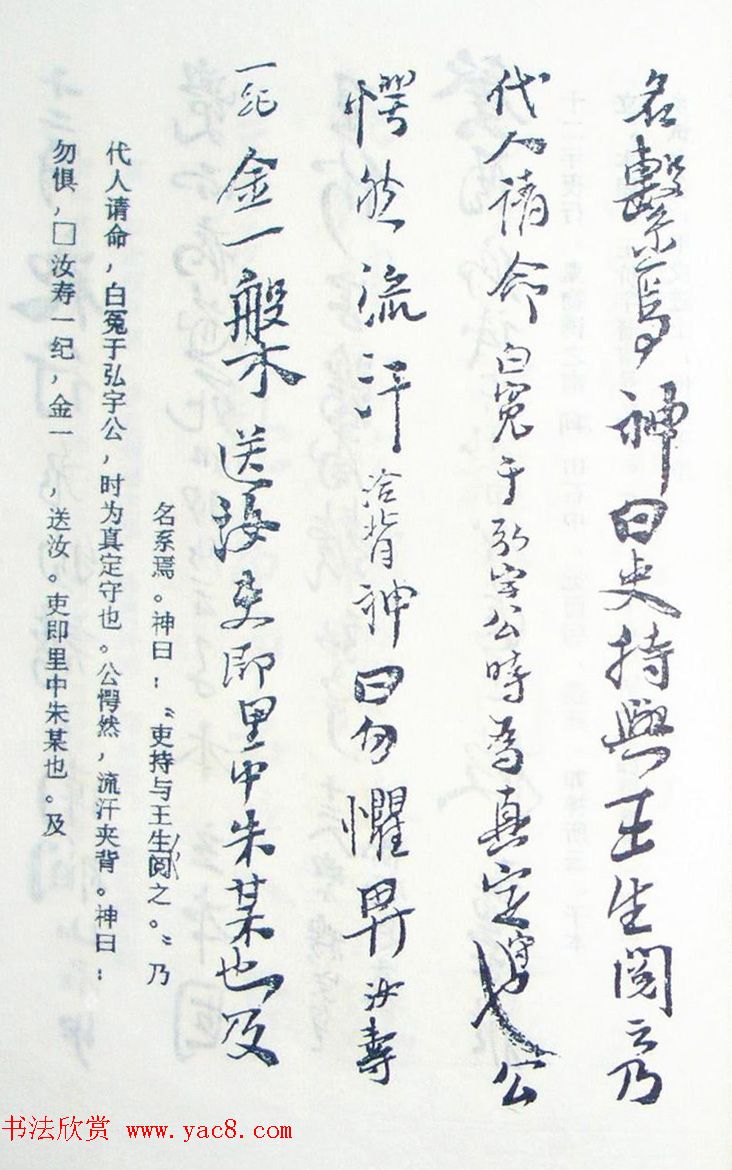 名繫焉神曰吏持與王生閱之乃
代人請命白冤于弘宇公時為真定守也公
愕然流汗浹背神曰勿懼畀汝壽
一紀金一槃送汝吏即里中朱某也及
名系焉。神曰：“吏持与王生阅之。”乃
代人请命，白冤于弘宇公，时为真定守也。公愕然，流汗夹背。神曰：
勿惧，□汝寿一纪，金一　，送汝。吏即里中朱某也。及
书法欣赏 www.yac8.com